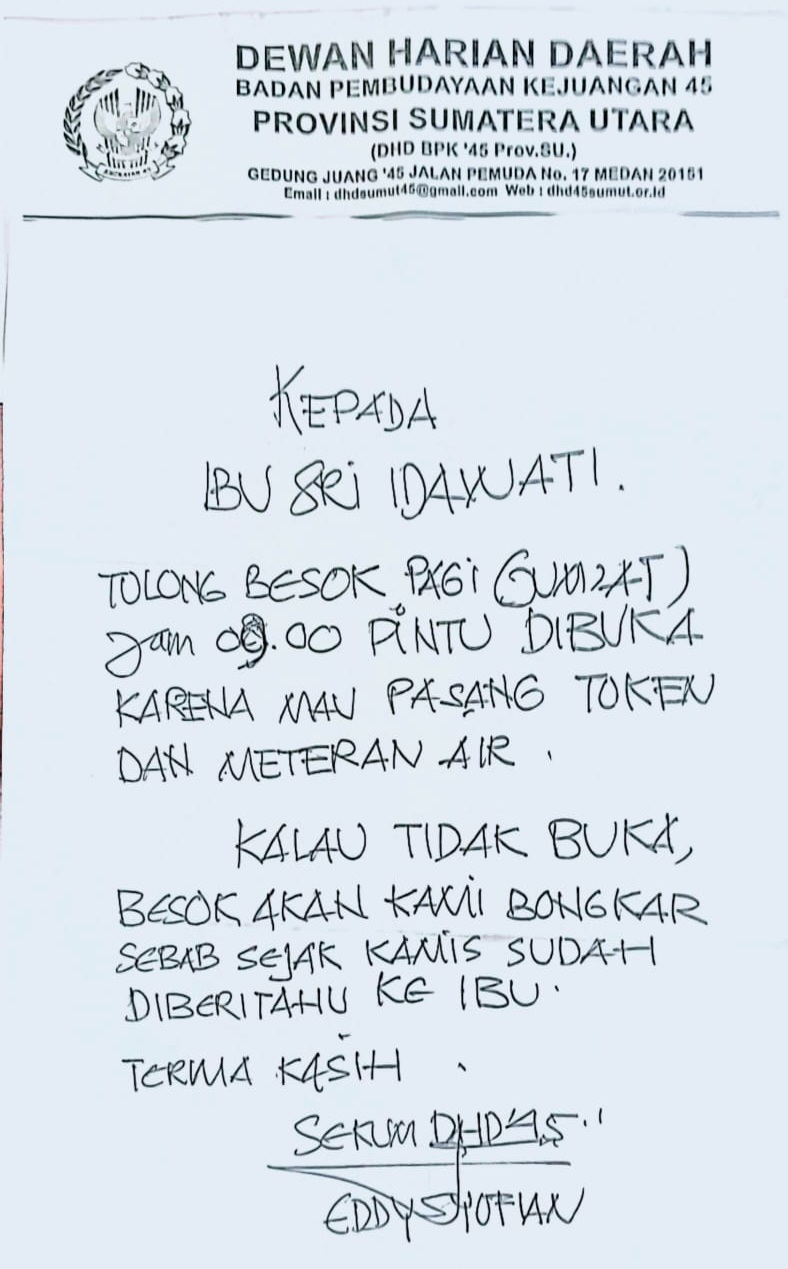 DEWAN HARIAN DAERAH
BADAN PEMBUDAYAAN KEJUANGAN 45
PROVINSI SUMATERA UTARA
(DHD BPK '45 Prov.SU.)
GEDUNG JUANG '45 JALAN PEMUDA No. 17 MEDAN 20151
Email : dhdsumut45@gmail.com Web : dhd45sumut.or.id
KEPADA
IBU SRI IDAWATI.
TOLONG BESOK PAGI (JUM'AT)
Jam 09.00 PINTU DIBUKA
KARENA MAU PASANG TOKEN
DAN METERAN AIR.
KALAU TIDAK BUKA,
BESOK AKAN KAMI BONGKAR
SEBAB SEJAK KAMIS SUDAH
DIBERITAHU KE IBU.
TERIMA KASIH.
SEKUM DHD'45
EDDY SYOFIAN